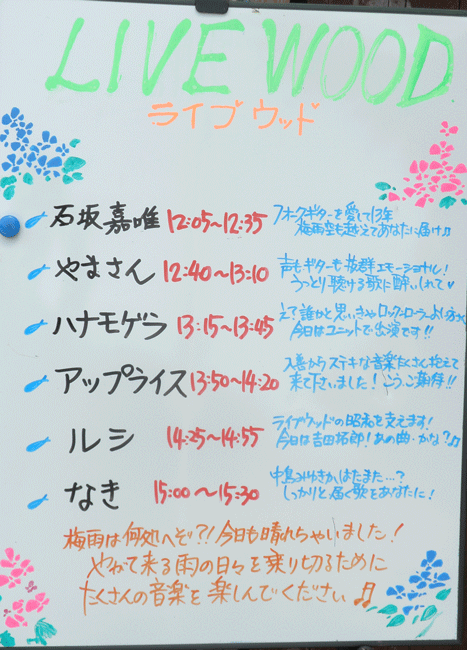 LIVE WOOD
ライブウッド
石坂嘉唯 12:05〜12:35 フォークギターを愛して13年
梅雨空も越えてあなたに届け♫
やまさん 12:40〜13:10 声もギターも抜群エモーショナル!
うっとり聴ける歌に酔いしれて♡
ハナモゲラ 13:15〜13:45 え?誰かと思いきやロックンローラーよしお
今日はユニットで出演です!!
アップライス 13:50〜14:20 入善からステキな音楽たくさん抱えて
来て下さいました!こうご期待!!
ルシ 14:25〜14:55 ライブウッドの昭和を支えます!
今日は吉田拓郎!あの曲・かな?♫
なき 15:00〜15:30 中島みゆきかはたまた…?
しっかりと届く歌をあなたに!
梅雨は何処へぞ?!今日も晴れちゃいました!
やがて来る雨の日々を乗り切るために
たくさんの音楽を楽しんでください♫